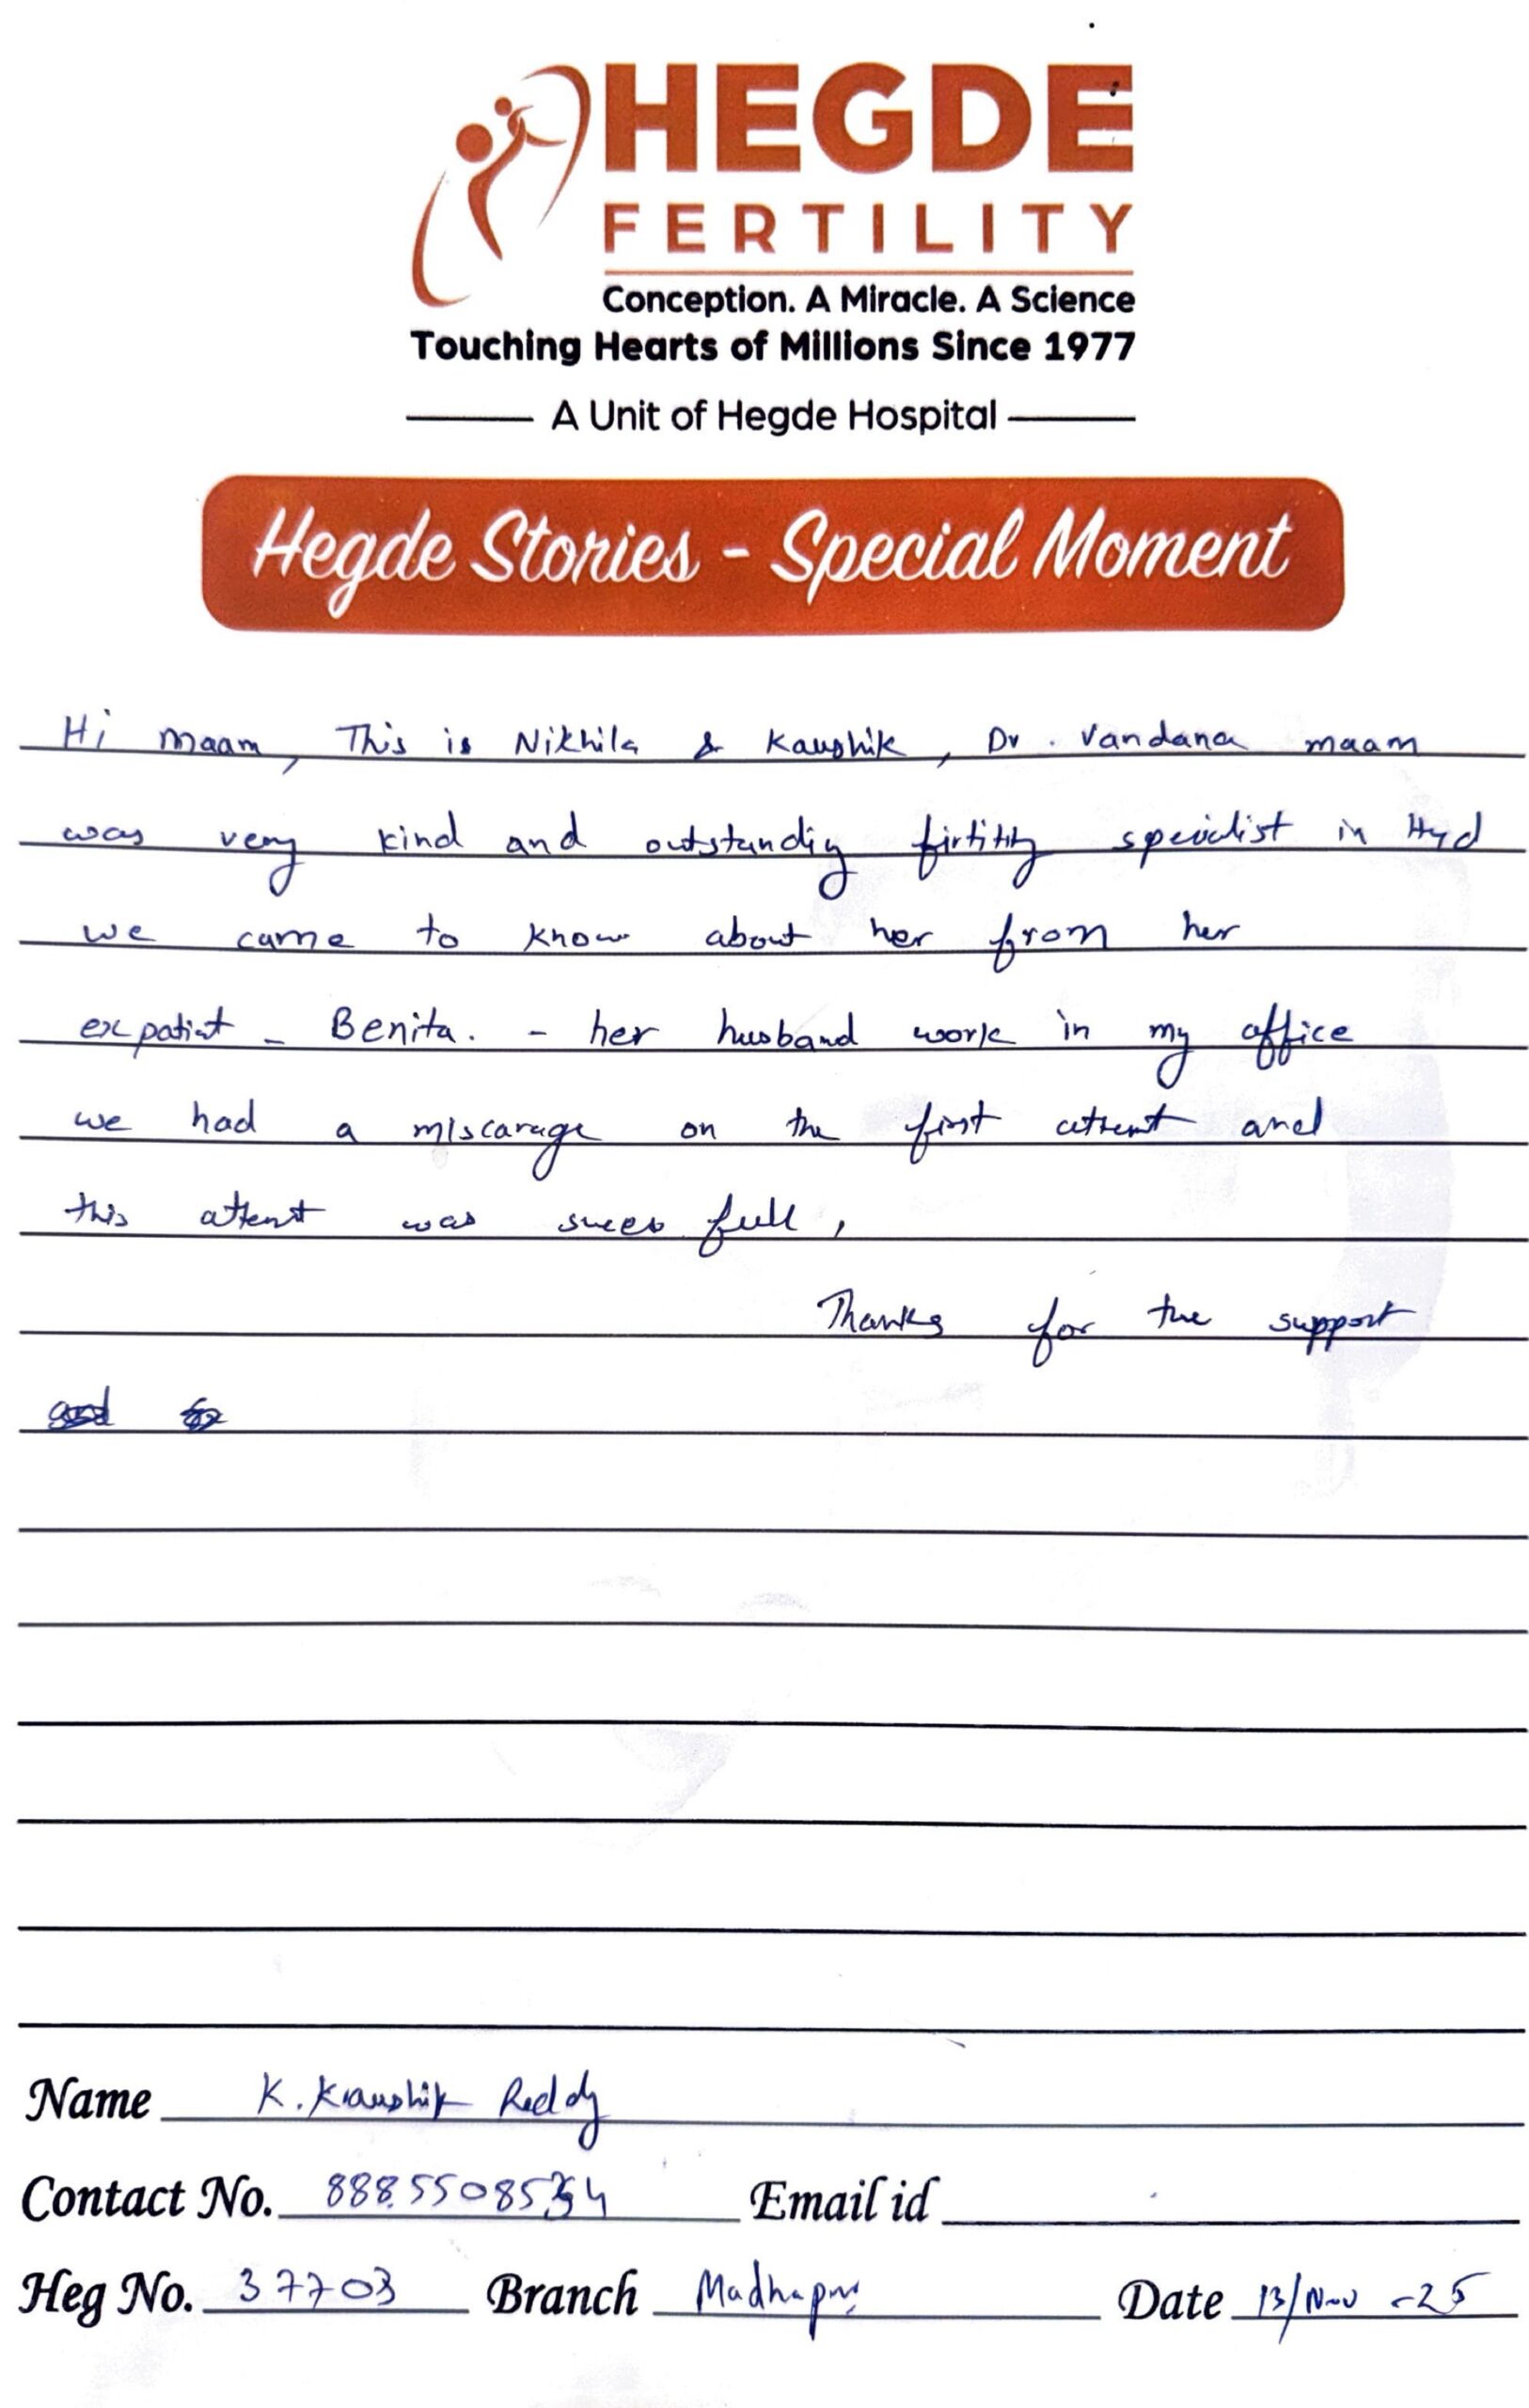 HEGDE
FERTILITY
Conception. A Miracle. A Science
Touching Hearts of Millions Since 1977
A Unit of Hegde Hospital
Hegde Stories - Special Moment
Hi maam, This is Nikhila & Kaushik, Dr. Vandana maam
was very kind and outstandig firtitity specialist in Hyd
we came to know about her from her
ex patint - Benita. - her husband work in my office
we had a miscarage on the first attemt and
this attemt was succes full,
Thanks for the support
and
Name K. Kaushik Reddy
Contact No. Email id
Heg No. 37703 Branch Madhapur Date 13/Nov -25